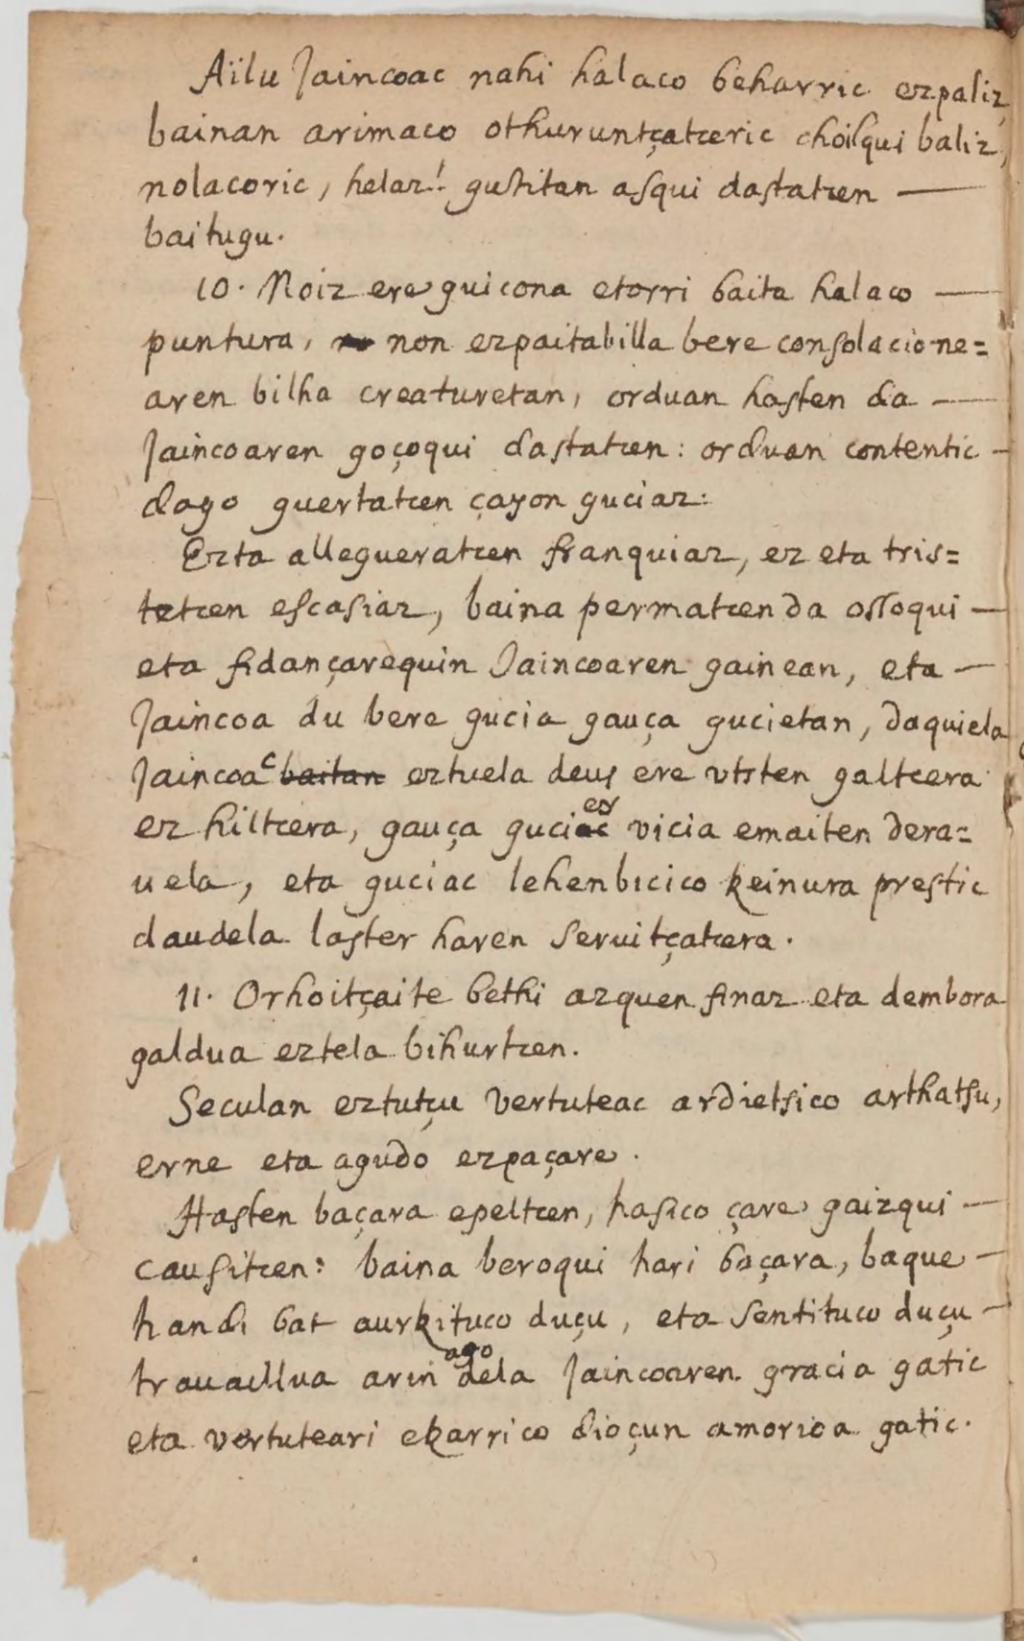 Aïlu Jaincoac nahi halaco beharric ezpaliz,
bainan arimaco othuruntçatceric choilqui baliz,
nolacoric, helaz! gustitan asqui dastatzen —
baitugu.
10. Noiz ere guicona etorri baita halaco —
puntura, non ezpaitabilla bere consolacione=
aren bilha creaturetan, orduan hasten da —
Jaincoaren goçoqui dastatzen: orduan contentic —
dago guertatzen çayon guciaz:
Ezta allegueratzen franquiaz, ez eta tris=
tetzen escasiaz, baina permatzen da ossoqui —
eta fidançarequin Jaincoaren gainean, eta —
Jaincoa du bere gucia gauça gucietan, daquiela
Jaincoac baitan eztuela deus ere vtsten galtcera
ez hiltcera, gauça guciei vicia emaiten dera=
uela, eta guciac lehenbicico keinura prestic
daudela laster haren seruitçatcera.
11. Orhoitçaite bethi azquen finaz eta dembora
galdua eztela bihurtzen.
Seculan eztutçu vertuteac ardietsico arthatsu,
erne eta agudo ezpaçare.
Hasten baçara epeltzen, hasico çare gaizqui —
causitzen: baina beroqui hari baçara, baque —
handi bat aurkituco duçu, eta sentituco duçu —
trauaillua arinago dela Jaincoaren gracia gatic
eta vertuteari ekarrico dioçun amorioa gatic.